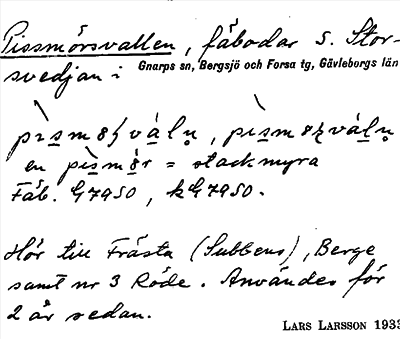 Pissmörsvallen, fäbodar S. Stor-
svedjan i Gnarps sn, Bergsjö och Forsa tg, Gävleborgs län
en pìsmär = stackmyra
Fäb. G7950, kG7950.
Hör till Frästa (Subbens), Berge
samt nr 3 Röde. Användes för
2 år sedan.
LARS LARSSON 1933